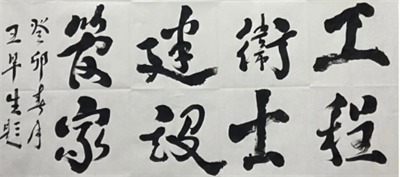 工程
衛士
建設
管家
癸卯春月
王早生題